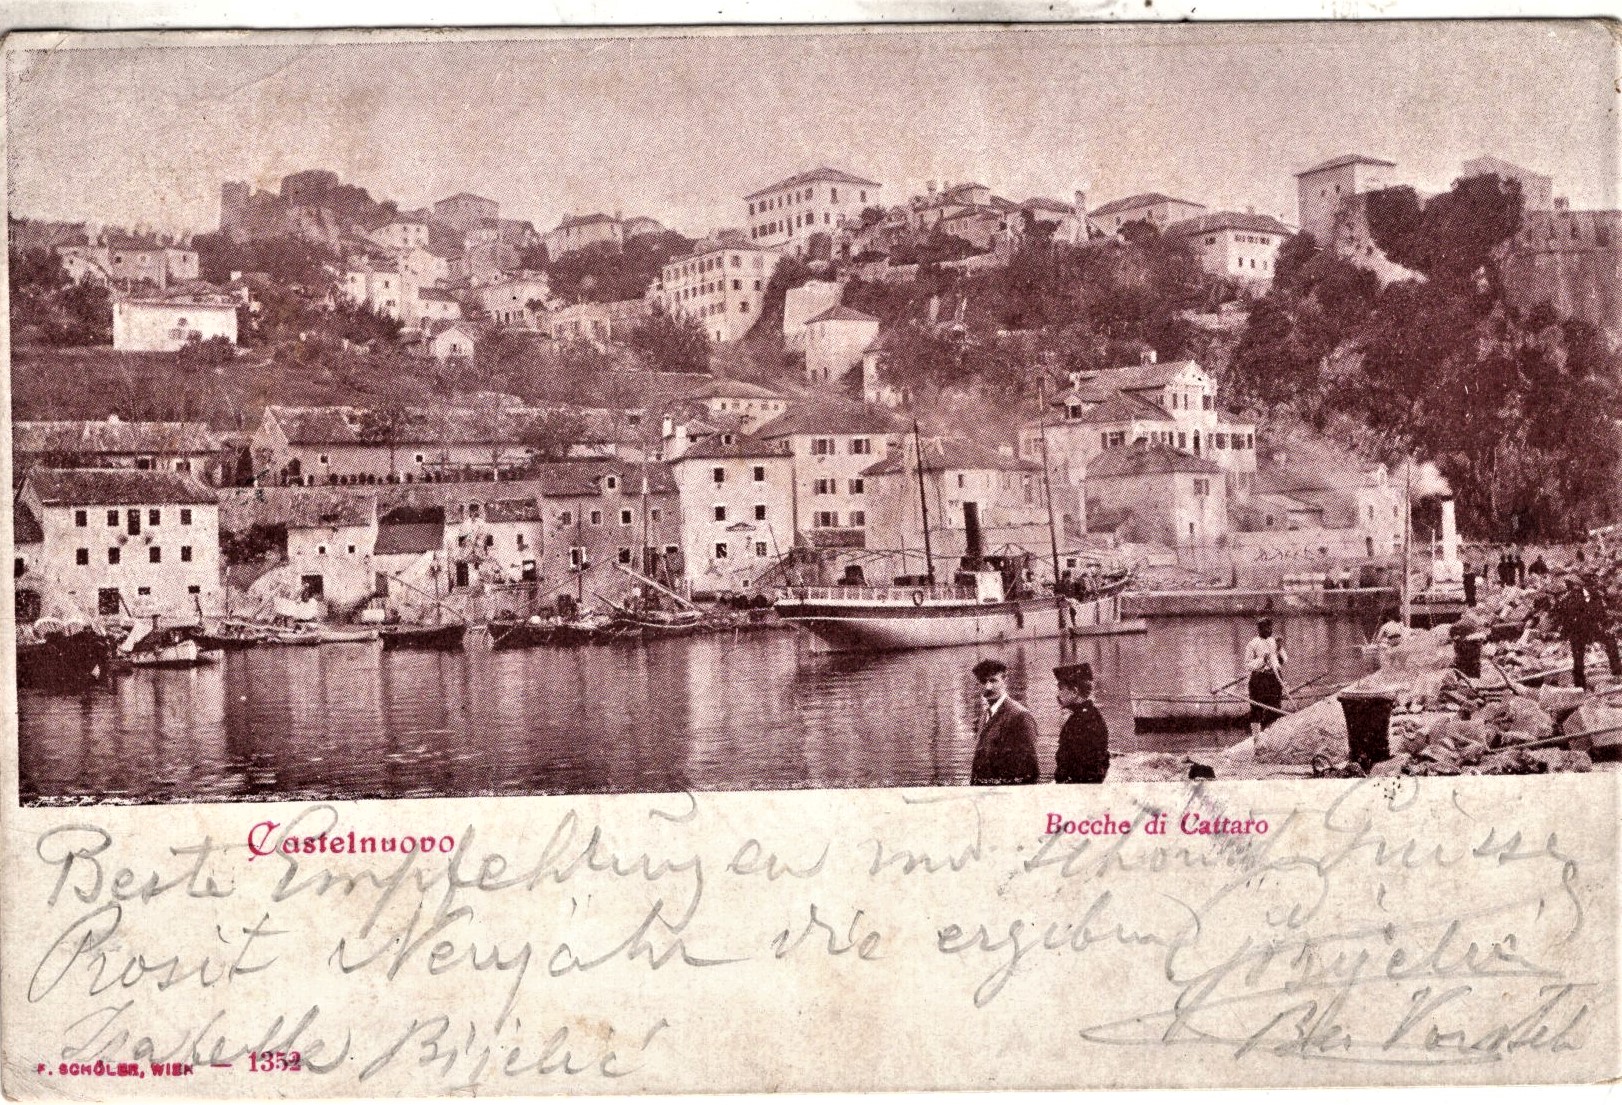 Castelnuovo
Bocche di Cattaro
Beste Empfehlungen und schöne Grüsse
Prosit Neujahr die ergeben
Isabella Bijelić
F. SCHÖLER, WIEN — 1352